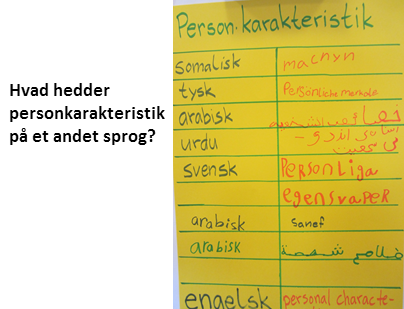 Hvad hedder
personkarakteristik
på et andet sprog?
Person·karakteristik
somalisk macnyn
tysk Persönliche merkmale
arabisk
urdu
svensk Personliga
egensvaper
arabisk sanef
arabisk
engelsk personal characte-